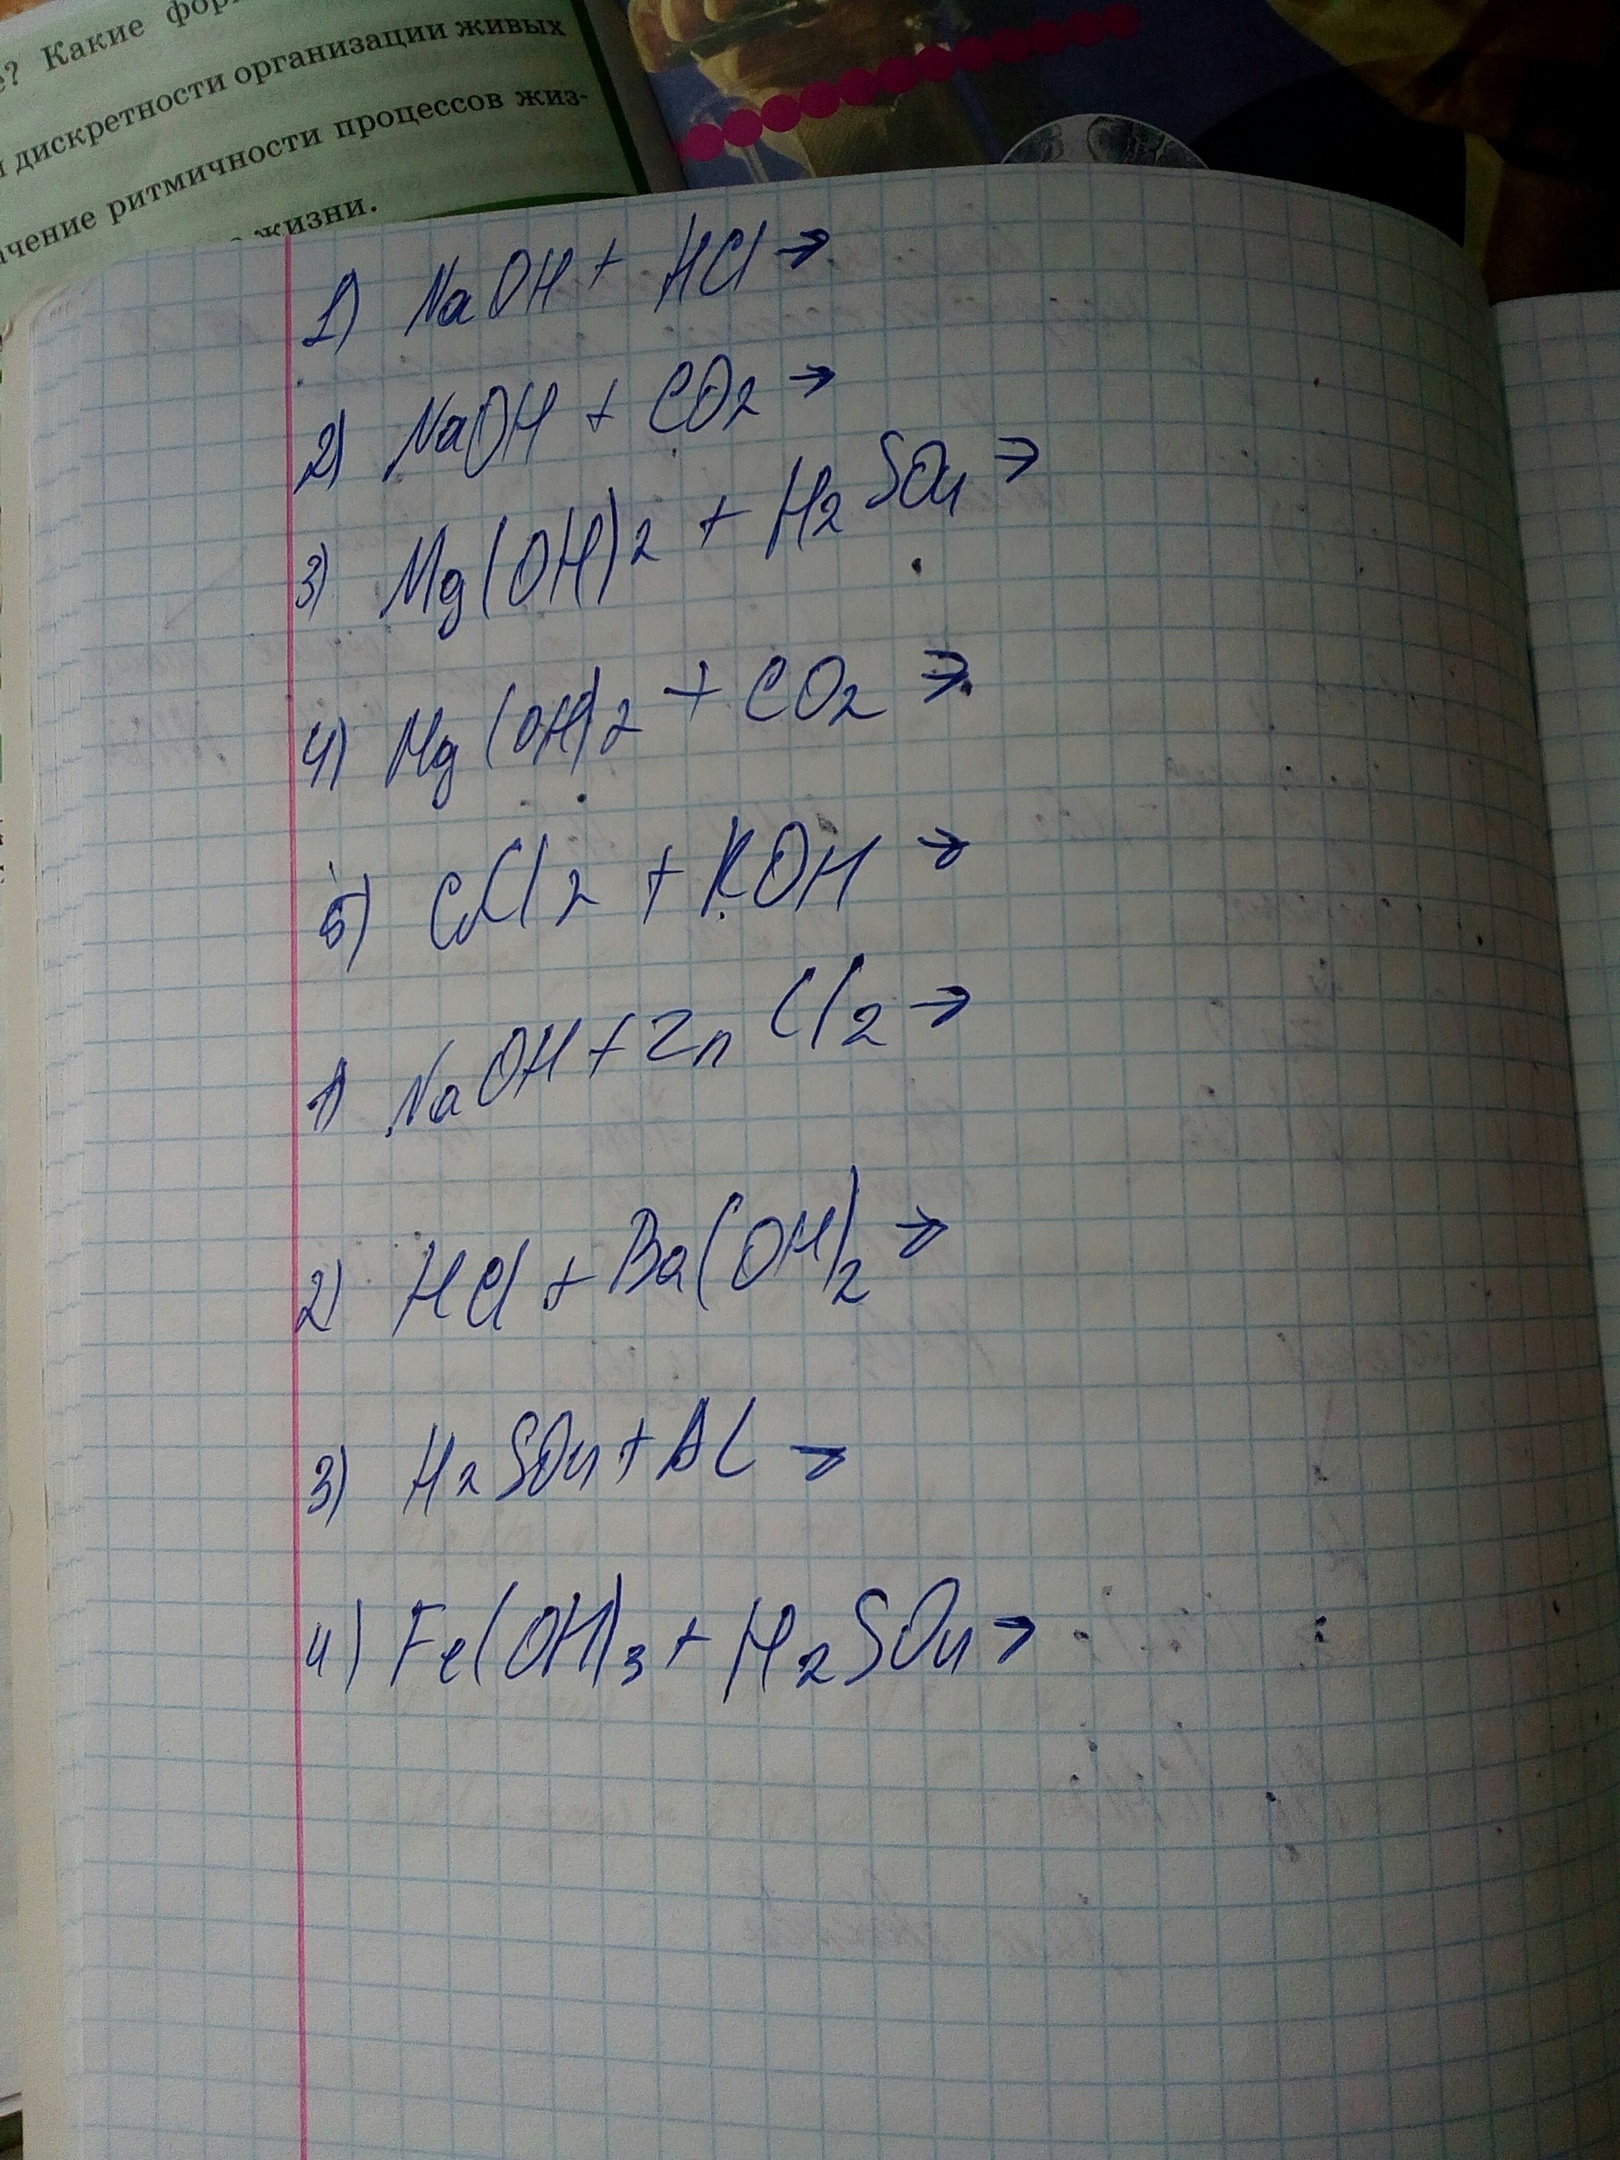 Какие
дискретности организации живых
ачение ритмичности процессов жиз-
жизни.
1) NaOH + HCl →
2) NaOH + CO2 →
3) Mg(OH)2 + H2SO4 →
4) Mg(OH)2 + CO2 →
5) CuCl2 + KOH →
1) NaOH + ZnCl2 →
2) HCl + Ba(OH)2 →
3) H2SO4 + Al →
4) Fe(OH)3 + H2SO4 →